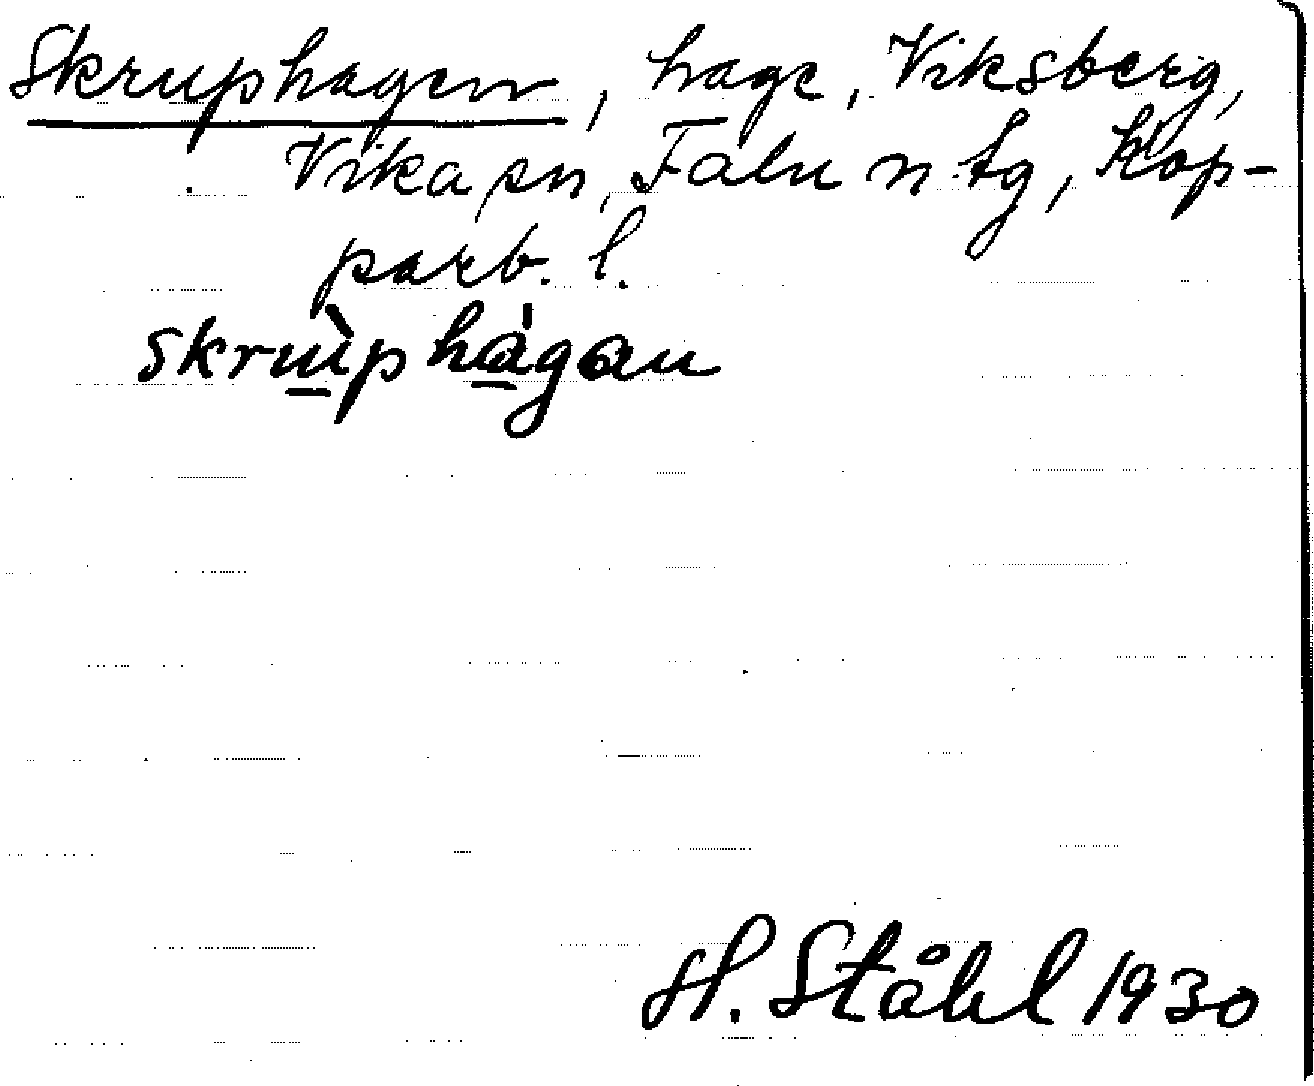 Skruphagen, hage, Viksberg,
Vika sn, Falu n tg, Kop-
parb. l.
skrù̲phá̲gan
H. Ståhl 1930